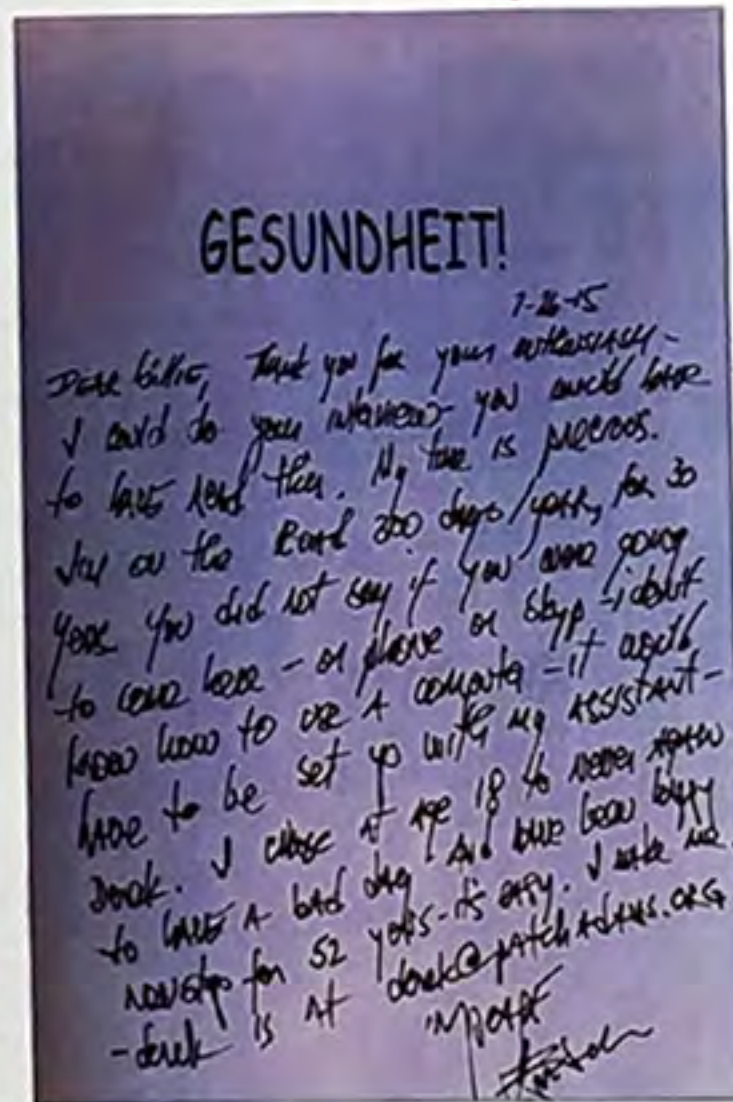 GESUNDHEIT!
7-26-15
Dear Billie, Thank you for your enthusiasm -
I could do your interview - you would have
to have read this. My time is precious.
I'm on the Road 300 days/year, for 30
years you did not say if you were going
to come here - or phone or skyp - i don't
know how to use A computer - it would
have to be set up with my ASSISTANT -
Derek. I chose at age 18 to never again
to have A bad day And have been happy
nonstop for 52 years - it's easy. I
- derek is at derek@patchadams.org
in peace